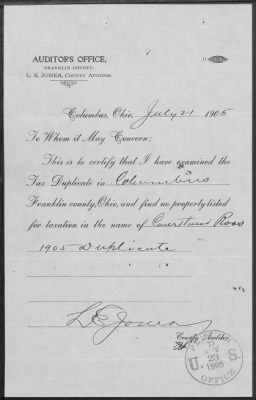 AUDITOR'S OFFICE,
FRANKLIN COUNTY.
L. E. JONES, COUNTY AUDITOR.
Columbus, Ohio, July 21 1905
To Whom it May Concern:
This is to certify that I have examined the
Tax Duplicate in Columbus
Franklin county, Ohio, and find no property listed
for taxation in the name of Ross
1905 Duplicate
L E Jones
County Auditor,
23
U. S.
1905
OFFICE.